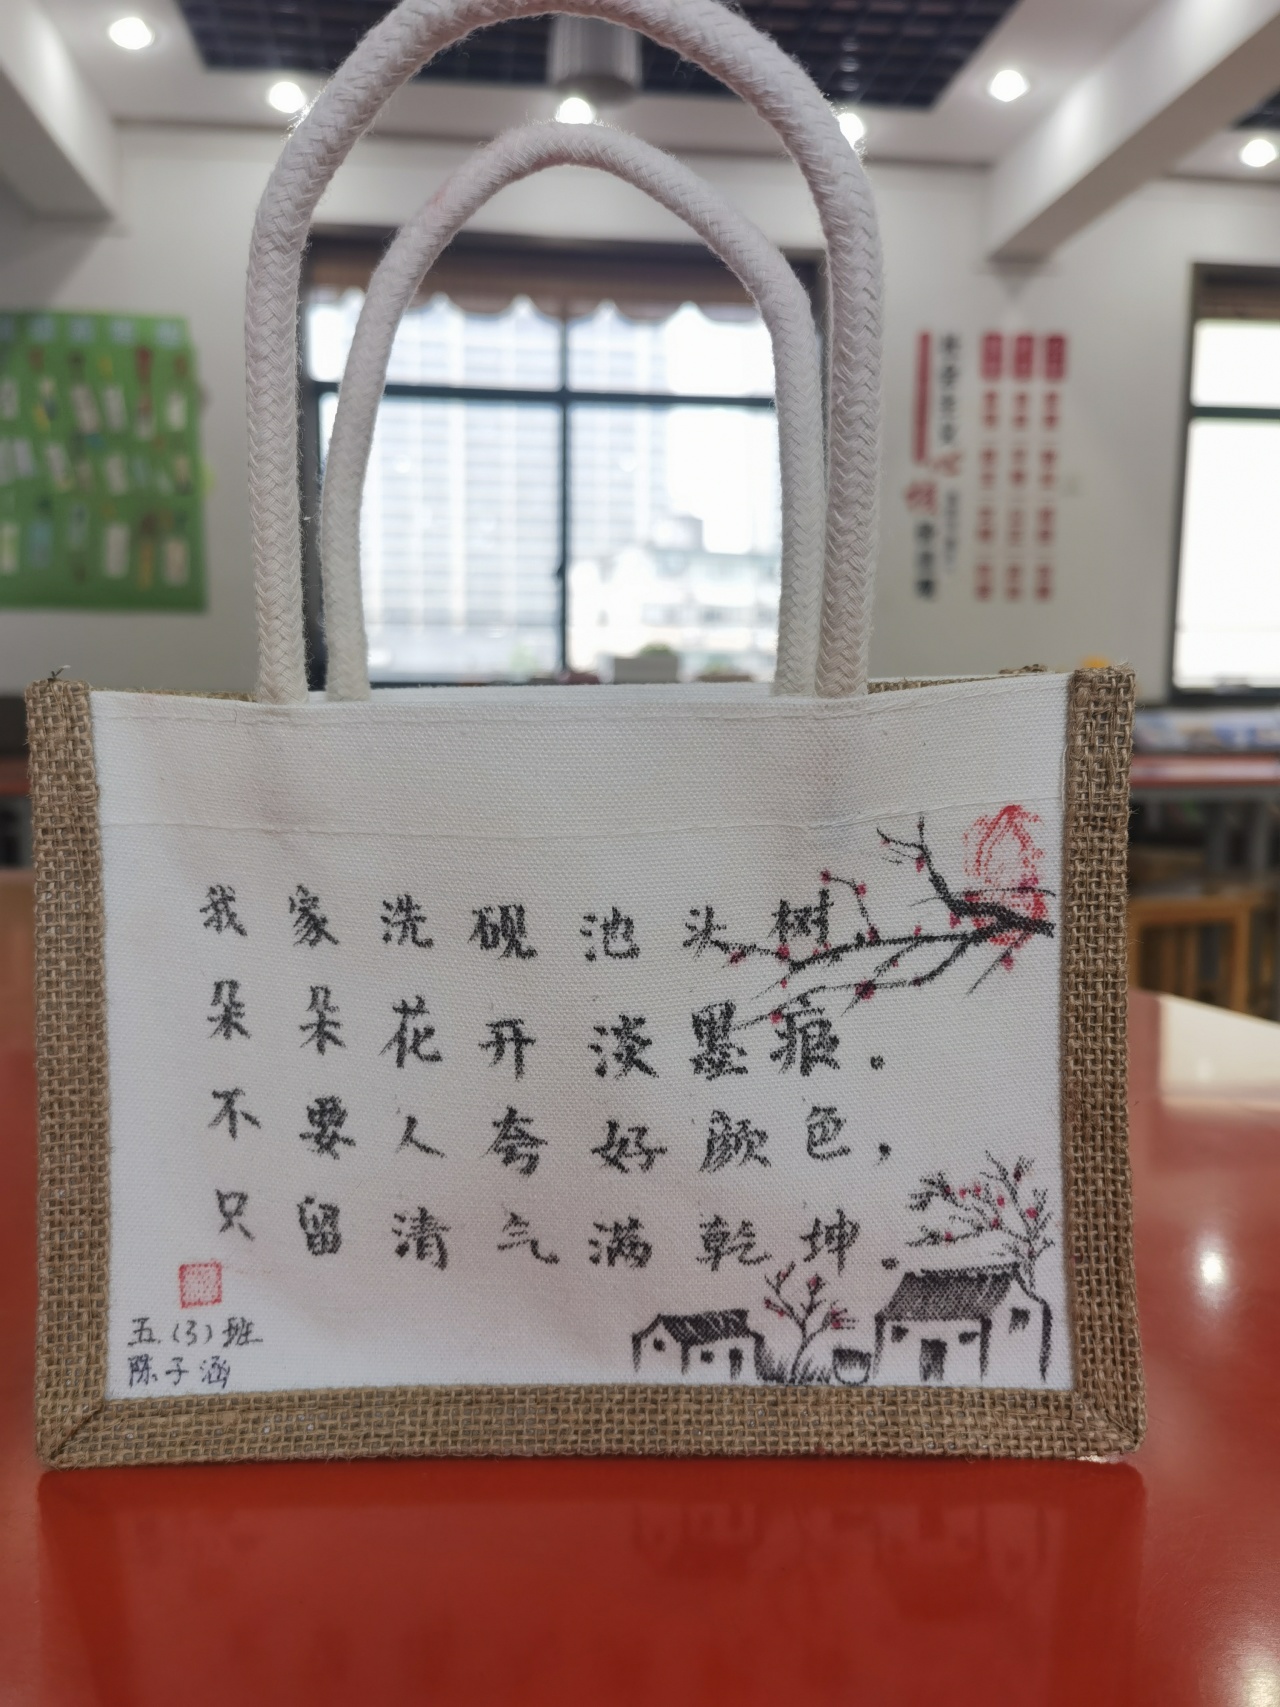 我家洗砚池头树
朵朵花开淡墨痕.
不要人夸好颜色,
只留清气满乾坤.
五.(3)班
陈子涵